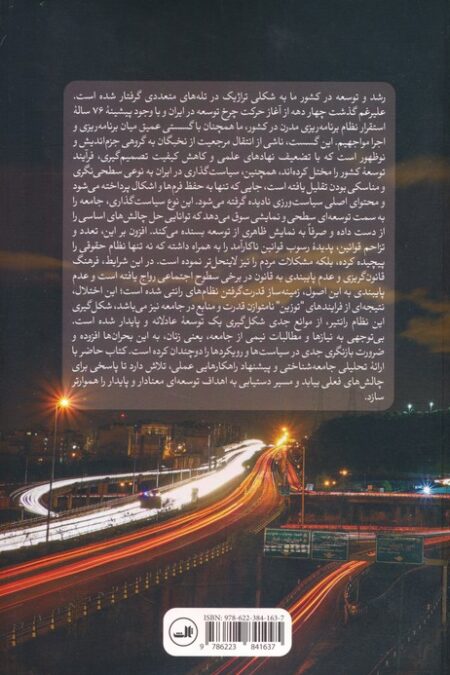 رشد و توسعه در کشور ما به شکلی تراژیک در تله‌های متعددی گرفتار شده است.
علیرغم گذشت چهار دهه از آغاز حرکت چرخ توسعه در ایران و با وجود پیشینۀ ۷۶ سالۀ
استقرار نظام برنامه‌ریزی مدرن در کشور، ما همچنان با گسستی عمیق میان برنامه‌ریزی و
اجرا مواجهیم. این گسست، ناشی از انتقال مرجعیت از نخبگان به گروهی جزم‌اندیش و
نوظهور است که با تضعیف نهادهای علمی و کاهش کیفیت تصمیم‌گیری، فرآیند
توسعۀ کشور را مختل کرده‌اند. همچنین، سیاست‌گذاری در ایران به نوعی سطحی‌نگری
و مناسکی بودن تقلیل یافته است، جایی‌که تنها به حفظ فرم‌ها و اشکال پرداخته می‌شود و
محتوای اصلی سیاست‌ورزی نادیده گرفته می‌شود. این نوع سیاست‌گذاری، جامعه را
به سمت توسعه‌ای سطحی و نمایشی سوق می‌دهد که توانایی حل چالش‌های اساسی را
از دست داده و صرفاً به نمایش ظاهری از توسعه بسنده می‌کند. افزون بر این، تعدد و
تزاحم قوانین، پدیدۀ رسوب قوانین ناکارآمد را به همراه داشته که نه تنها نظام حقوقی را
پیچیده کرده، بلکه مشکلات مردم را نیز لاینحل‌تر نموده است. در این شرایط، فرهنگ
قانون‌گریزی و عدم پایبندی به قانون در برخی سطوح اجتماعی رواج یافته است و عدم
پایبندی به این اصول، زمینه‌ساز قدرت‌گرفتن نظام‌های رانتی شده است؛ این اختلال،
نتیجه‌ای از فرایندهای "توزین" نامتوازن قدرت و منابع در جامعه نیز می‌باشد. شکل‌گیری
این نظام رانتیر، از موانع جدی شکل‌گیری یک توسعۀ عادلانه و پایدار شده است.
بی‌توجهی به نیازها و مطالبات نیمی از جامعه، یعنی زنان، به این بحران‌ها افزوده و
ضرورت بازنگری جدی در سیاست‌ها و رویکردها را دوچندان کرده است. کتاب حاضر با
ارائۀ تحلیلی جامعه‌شناختی و پیشنهاد راهکارهایی عملی، تلاش دارد تا پاسخی برای
چالش‌های فعلی بیابد و مسیر دستیابی به اهداف توسعه‌ای معنادار و پایدار را هموارتر
سازد.
ISBN: 978-622-384-163-7
9 786223 841637
ثالث